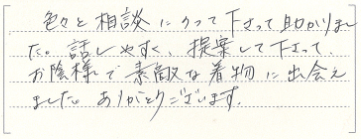 色々と相談にのって下さって助かりまし
た。話しやすく、提案して下さって、
お陰様で素敵な着物に出会え
ました。ありがとうございます。